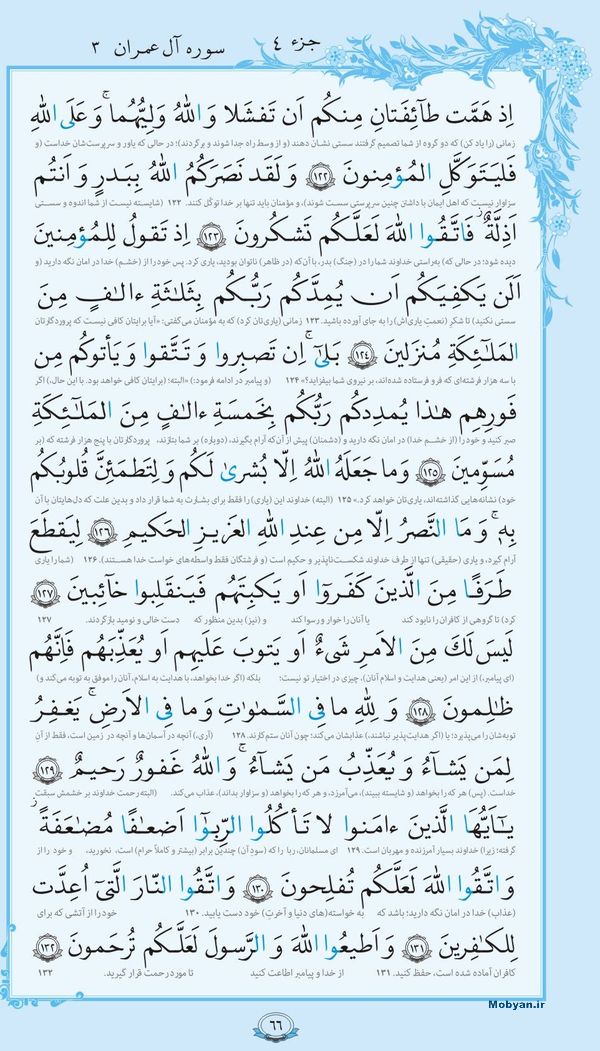 سوره آل عمران ۳
جزء ۴
اِذ هَمَّت طآئِفَتانِ مِنکُم اَن تَفشَلا وَ اللهُ وَلِیُّهُما ۗ وَ عَلَی اللهِ
زمانی (را یاد کن) که دو گروه از شما تصمیم گرفتند سستی نشان دهند (و از وسط راه جدا شوند و برگردند)؛ در حالی که یاور و سرپرست‌شان خداست (و
فَلیَتَوَکَّلِ المُؤمِنونَ ﴿۱۲۲﴾ وَ لَقَد نَصَرَکُمُ اللهُ بِبَدرٍ وَ اَنتُم
سزاوار نیست که اهل ایمان با داشتن چنین سرپرستی سست شوند)، و مؤمنان باید تنها بر خدا توکّل کنند. ۱۲۲ (شایسته نیست از شما اندوه و سستی
اَذِلَّةٌ ۖ فَاتَّقُوا اللهَ لَعَلَّکُم تَشکُرونَ ﴿۱۲۳﴾ اِذ تَقولُ لِلمُؤمِنینَ
دیده شود؛ در حالی که) به‌راستی خداوند شما را در (جنگ) بدر، با آن‌که (در ظاهر) ناتوان بودید، یاری کرد. پس خود را از (خشمِ) خدا در امان نگه دارید (و
اَلَن یَکفِیَکُم اَن یُمِدَّکُم رَبُّکُم بِثَلاثَةِ ءالافٍ مِنَ
سستی نکنید) تا شکرِ (نعمتِ یاری‌اش) را به جای آورده باشید. ۱۲۳ زمانی (یاری‌تان کرد) که به مؤمنان می‌گفتی: «آیا برایتان کافی نیست که پروردگارتان
المَلائِکَةِ مُنزَلینَ ﴿۱۲۴﴾ بَلیٰ ۚ اِن تَصبِروا وَ تَتَّقوا وَ یَأتوکُم مِن
با سه هزار فرشته‌ای که فرو فرستاده شده‌اند، بر نیروی شما بیفزاید؟» ۱۲۴ (و پیامبر در ادامه فرمود:) «البته؛ (برایتان کافی خواهد بود. با این حال،) اگر
فَورِهِم هٰذا یُمدِدکُم رَبُّکُم بِخَمسَةِ ءالافٍ مِنَ المَلائِکَةِ
صبر کنید و خود را (از خشم خدا) در امان نگه دارید و (دشمنان) پیش از آن‌که آرام بگیرند، (دوباره) بر شما بتازند، پروردگارتان با پنج هزار فرشته که (بر
مُسَوِّمینَ ﴿۱۲۵﴾ وَ ما جَعَلَهُ اللهُ اِلّا بُشریٰ لَکُم وَ لِتَطمَئِنَّ قُلوبُکُم
خود) نشانه‌هایی گذاشته‌اند، یاری‌تان خواهد کرد.» ۱۲۵ (البته) خداوند این (یاری) را فقط برای بشارت به شما قرار داد و بدین علت که دل‌هایتان با آن
بِهٖ ۗ وَ مَا النَّصرُ اِلّا مِن عِندِ اللهِ العَزیزِ الحَکیمِ ﴿۱۲۶﴾ لِیَقطَعَ
آرام گیرد، و یاری (حقیقی) تنها از طرف خداوند شکست‌ناپذیر و حکیم است (و فرشتگان فقط واسطه‌های خواست خدا هستند). ۱۲۶ (شما را یاری
طَرَفًا مِنَ الَّذینَ کَفَروا اَو یَکبِتَهُم فَیَنقَلِبوا خآئِبینَ ﴿۱۲۷﴾
کرد) تا گروهی از کافران را نابود کند یا آنان را خوار و رسوا کند (و نیز) بدین منظور که دست خالی و نومید بازگردند. ۱۲۷
لَیسَ لَکَ مِنَ الاَمرِ شَیءٌ اَو یَتوبَ عَلَیهِم اَو یُعَذِّبَهُم فَاِنَّهُم
(ای پیامبر،) از این امر (یعنی هدایت و اسلام آنان)، چیزی در اختیار تو نیست؛ بلکه (اگر خدا بخواهد، با هدایت به اسلام، آنان را موفق به توبه می‌کند و)
ظالِمونَ ﴿۱۲۸﴾ وَ لِلّٰهِ ما فِی السَّماواتِ وَ ما فِی الاَرضِ ۚ یَغفِرُ
توبه‌شان را می‌پذیرد؛ یا (اگر هدایت‌پذیر نباشند،) عذابشان می‌کند؛ چون آنان ستم‌کارند. ۱۲۸ (آری،) آنچه در آسمان‌ها و آنچه در زمین است، فقط از آن
لِمَن یَشآءُ وَ یُعَذِّبُ مَن یَشآءُ ۚ وَ اللهُ غَفورٌ رَحیمٌ ﴿۱۲۹﴾
خداست. (پس) هر که را بخواهد (و شایسته ببیند)، می‌آمرزد، و هر که را بخواهد (و سزاوار بداند)، عذاب می‌کند. (البته رحمت خداوند بر خشمش سبقت
یٰاَیُّهَا الَّذینَ ءامَنوا لا تَأکُلُوا الرِّبوٰا اَضعافًا مُضاعَفَةً ۖ
گرفته؛ زیرا) خداوند بسیار آمرزنده و مهربان است. ۱۲۹ ای مسلمانان، ربا را که (سودِ آن) چندین برابر (بیشتر و کاملاً حرام) است، نخورید، و خود را از
وَ اتَّقُوا اللهَ لَعَلَّکُم تُفلِحونَ ﴿۱۳۰﴾ وَ اتَّقُوا النّارَ الَّتی اُعِدَّت
(عذاب) خدا در امان نگه دارید؛ باشد که به خواسته(های دنیا و آخرتِ) خود دست یابید. ۱۳۰ خود را از آتشی که برای
لِلکافِرینَ ﴿۱۳۱﴾ وَ اَطیعُوا اللهَ وَ الرَّسولَ لَعَلَّکُم تُرحَمونَ ﴿۱۳۲﴾
کافران آماده شده است، حفظ کنید. ۱۳۱ از خدا و پیامبر اطاعت کنید تا مورد رحمت قرار گیرید. ۱۳۲
۶۶
Mobyan.ir